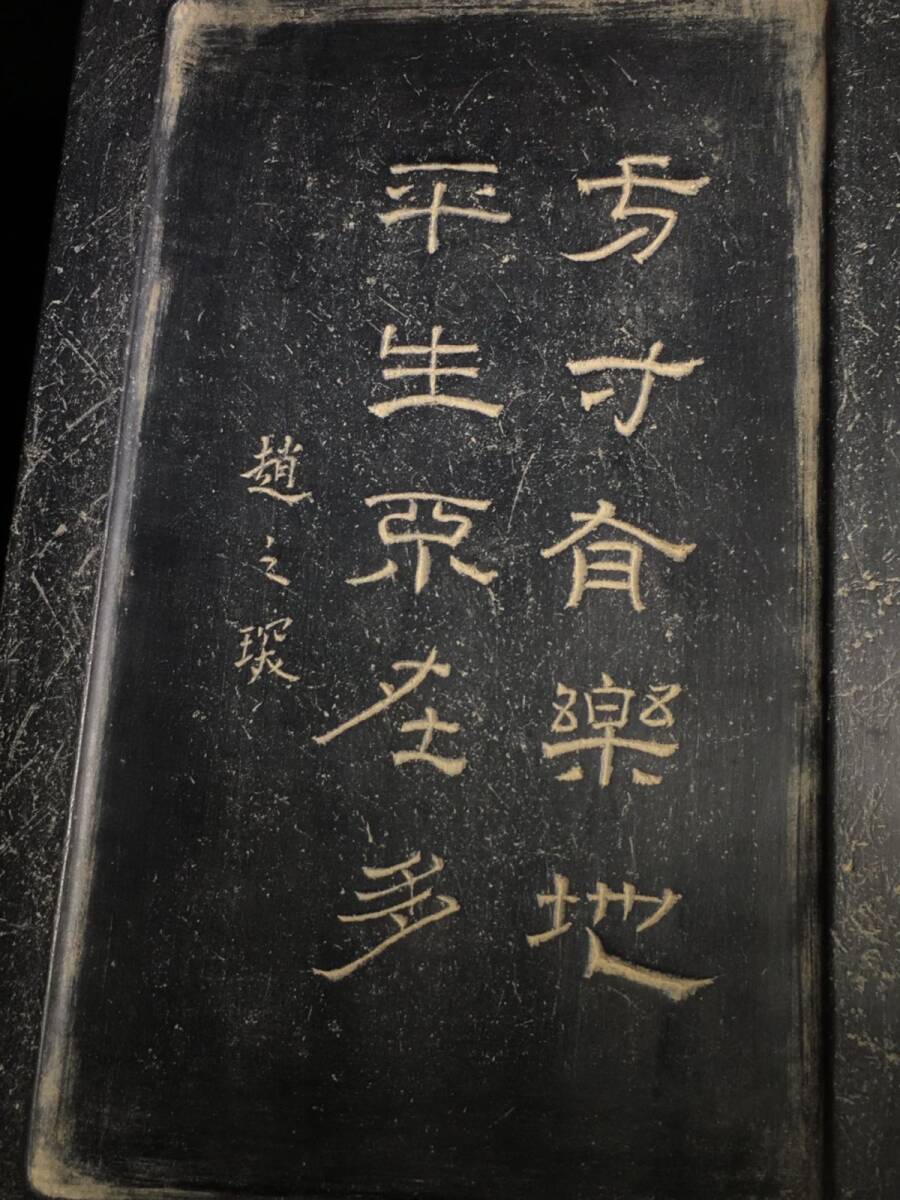 方寸有樂地
平生在多
趙之琛